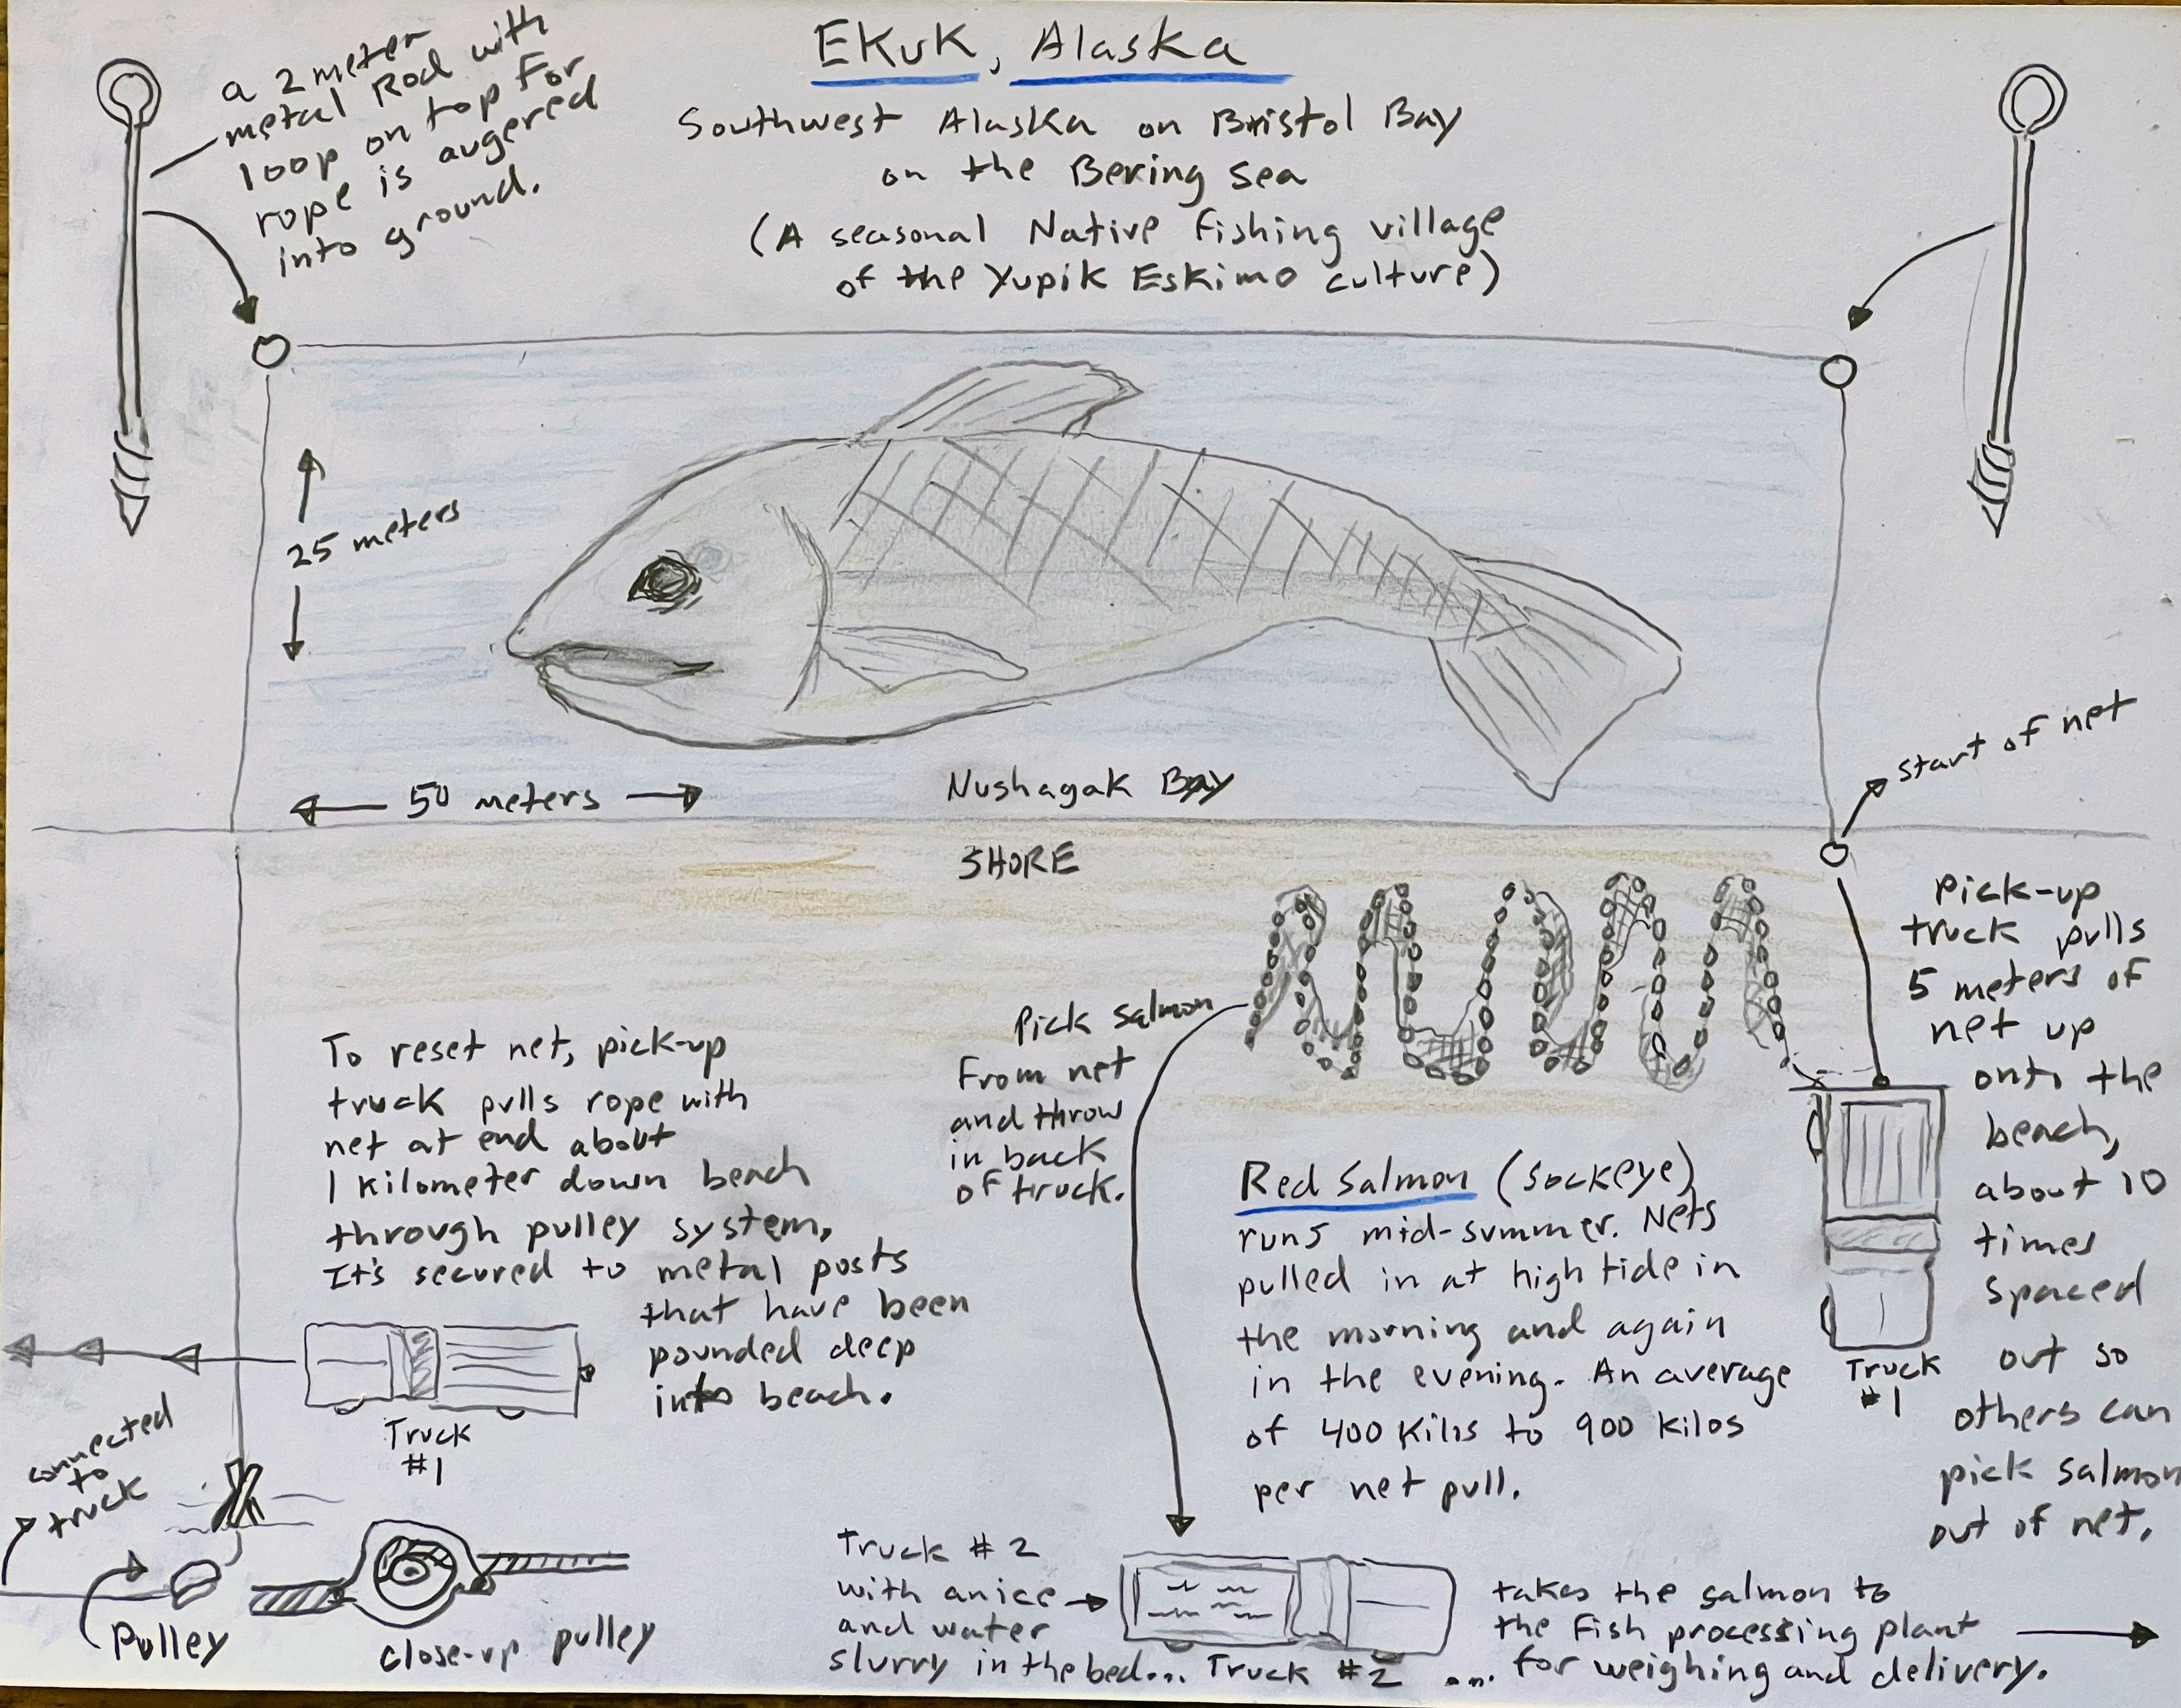 EKUK, Alaska
Southwest Alaska on Bristol Bay
on the Bering Sea
(A seasonal Native fishing village
of the Yupik Eskimo culture)
a 2 meter
metal Rod with
loop on top for
rope is augered
into ground.
25 meters
50 meters
Nushagak Bay
start of net
SHORE
Pick-up
truck pulls
5 meters of
net up
onto the
beach,
about 10
times
spaced
out so
others can
pick salmon
out of net.
Pick salmon
from net
and throw
in back
of truck.
To reset net, pick-up
truck pulls rope with
net at end about
1 kilometer down beach
through pulley system.
It's secured to metal posts
that have been
pounded deep
into beach.
Red Salmon (sockeye)
runs mid-summer. Nets
pulled in at high tide in
the morning and again
in the evening. An average
of 400 Kilos to 900 kilos
per net pull.
Truck
#1
Truck
#1
connected
to
truck
Pulley
close-up pulley
Truck #2
with an ice
and water
slurry in the bed... Truck #2
takes the salmon to
the fish processing plant
... for weighing and delivery.